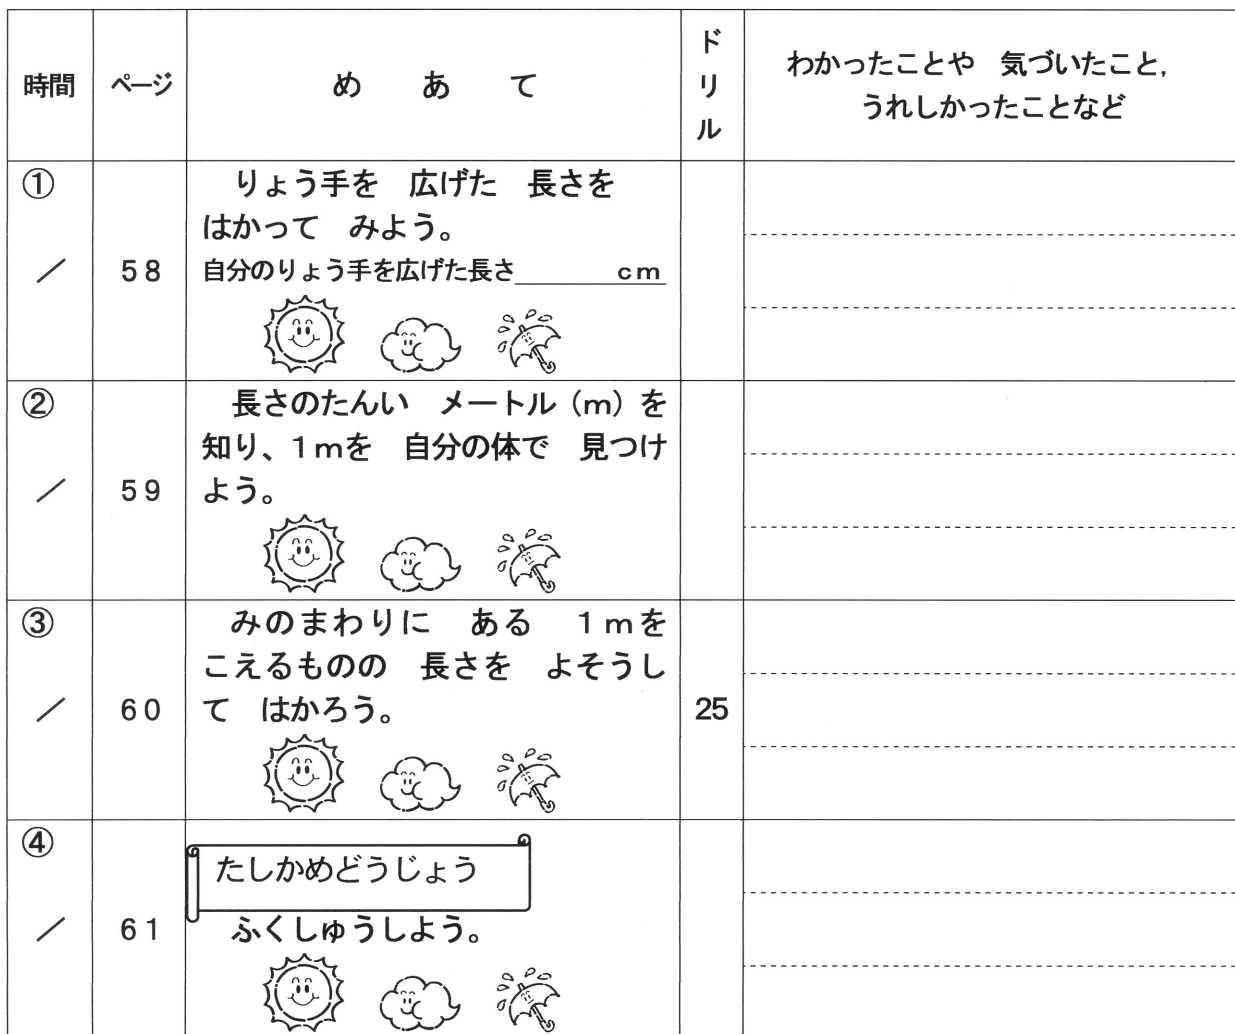 時間 ページ め あ て ドリル わかったことや 気づいたこと,
うれしかったことなど
①
りょう手を 広げた 長さを
はかって みよう。
／ 58 自分のりょう手を広げた長さ cm
②
長さのたんい メートル（m）を
知り、1mを 自分の体で 見つけ
／ 59 よう。
③
みのまわりに ある 1mを
こえるものの 長さを よそうし
／ 60 て はかろう。 25
④
たしかめどうじょう
／ 61 ふくしゅうしよう。